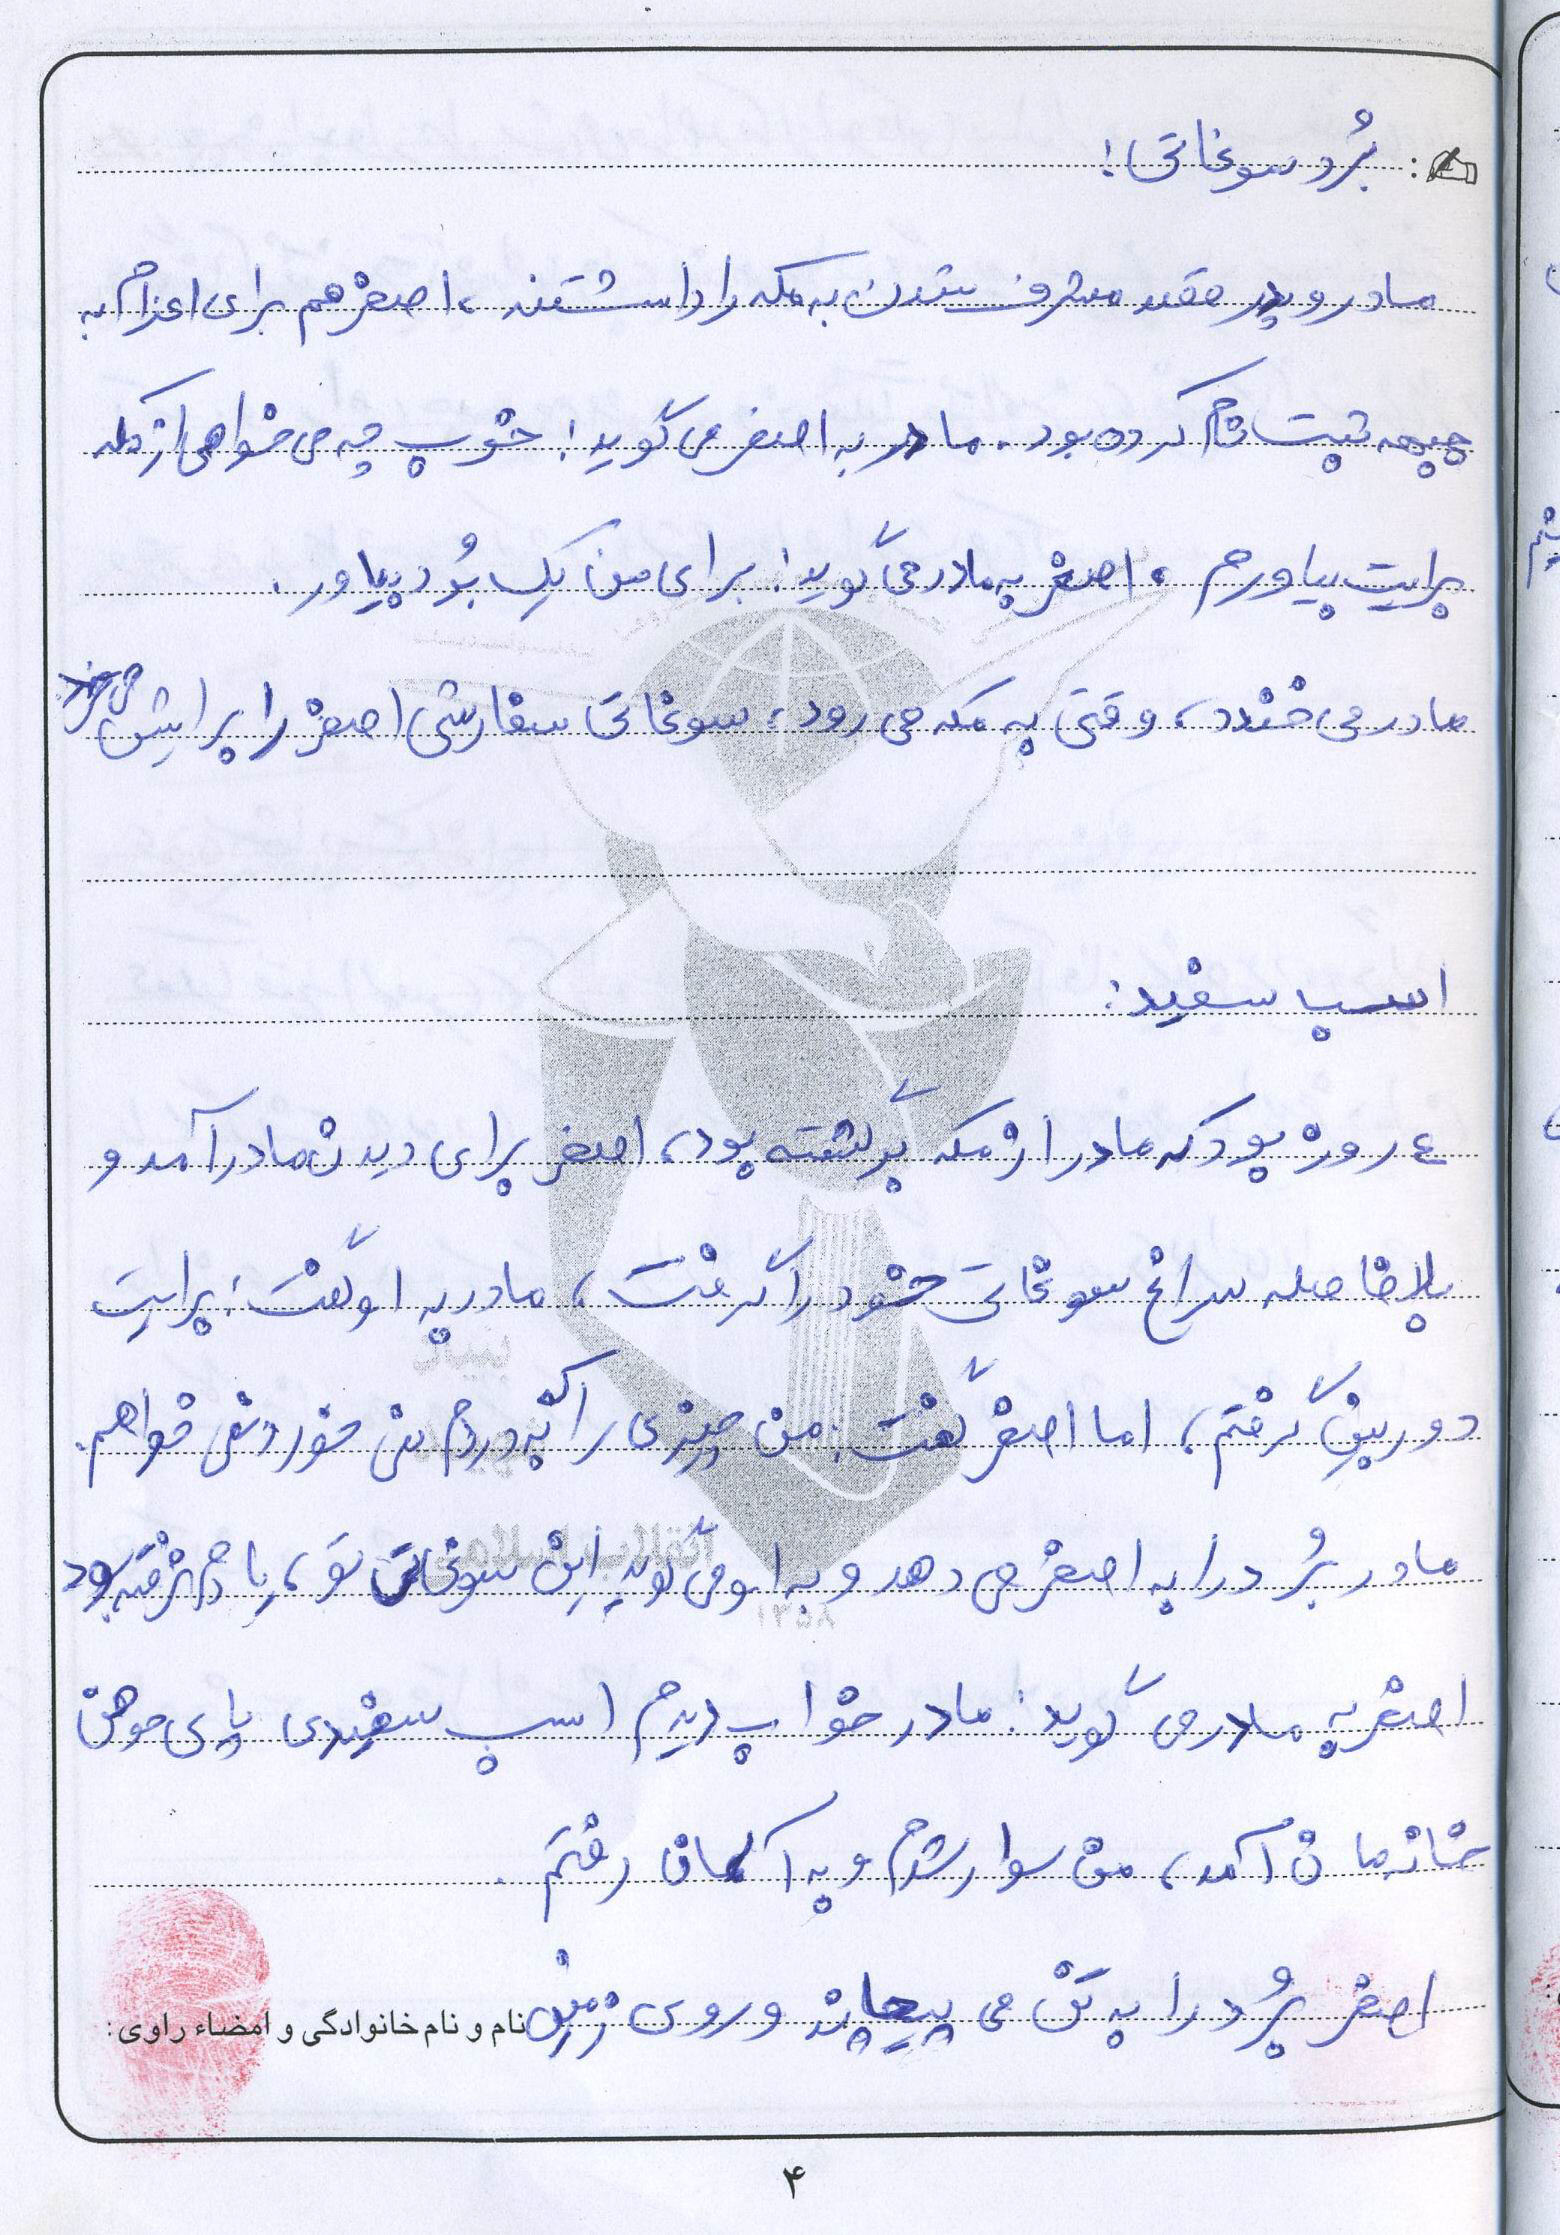 بُرد سوغاتی!
مادر و پدر قصد مشرف شدن به مکه را داشتند، اصغر هم برای اعزام به
جبهه ثبت نام کرده بود. مادر به اصغر می گوید: خوب چه می خواهی از مکه
برایت بیاورم. اصغر به مادر می گوید: برای من یک بُرد بیاور.
مادر می خندد، وقتی به مکه می رود، سوغاتی سفارشی اصغر را برایش می خرد
اسب سفید:
٤ روز بود که مادر از مکه برگشته بود، اصغر برای دیدن مادر آمد و
بلافاصله سراغ سوغاتی خود را گرفت، مادر به او گفت: برایت
دوربین گرفتم، اما اصغر گفت: من چیزی را که دردم نمی خورد نمی خواهم.
مادر بُرد را به اصغر می دهد و به او می گوید این سوغاتی تو، یادم نرفته بود
اصغر به مادر می گوید: مادر خواب دیدم اسب سفیدی پای حوض
خانه مان آمد، من سوارش شدم و به آسمان رفتم.
اصغر بُرد را به تن می پیچاند و روی زمین
نام و نام خانوادگی و امضاء راوی:
۴